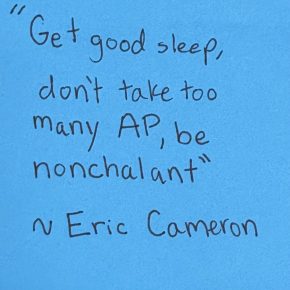 "Get good sleep,
don't take too
many AP, be
nonchalant"
~ Eric Cameron